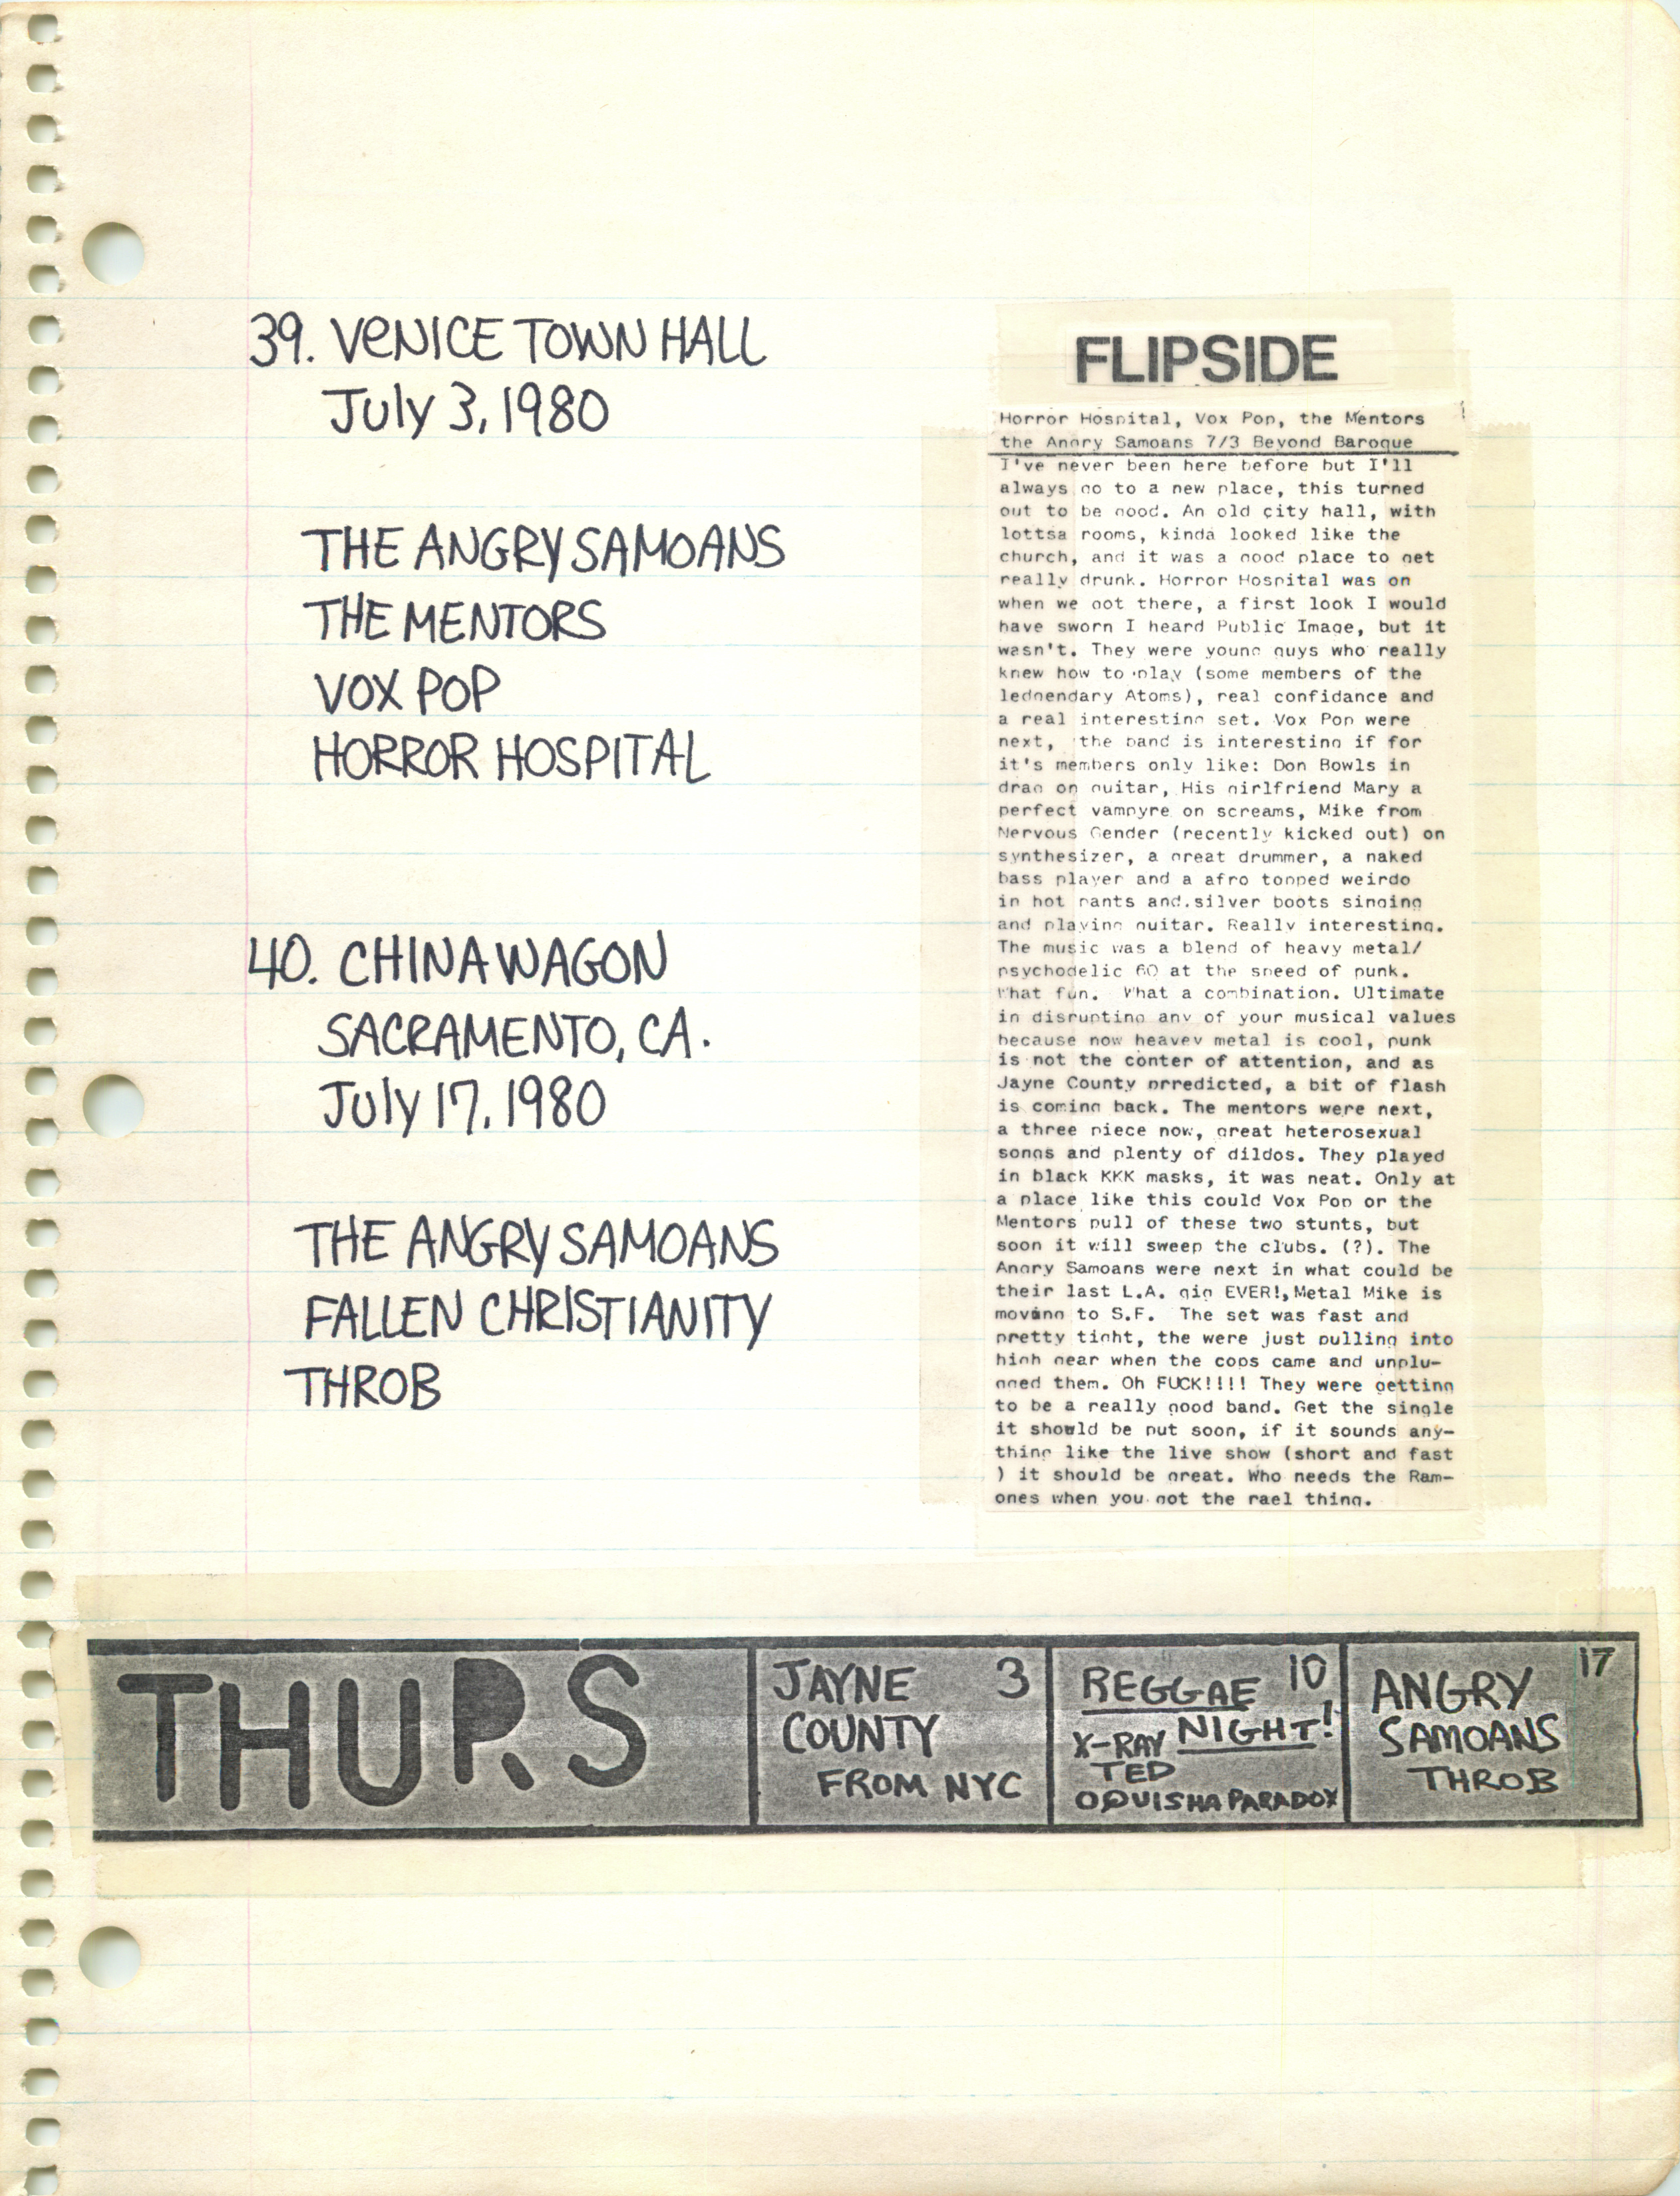 39. VENICE TOWN HALL
July 3, 1980
THE ANGRY SAMOANS
THE MENTORS
VOX POP
HORROR HOSPITAL
40. CHINA WAGON
SACRAMENTO, CA.
July 17, 1980
THE ANGRY SAMOANS
FALLEN CHRISTIANITY
THROB
FLIPSIDE
Horror Hospital, Vox Pop, the Mentors
the Angry Samoans 7/3 Beyond Baroque
I've never been here before but I'll
always go to a new place, this turned
out to be good. An old city hall, with
lottsa rooms, kinda looked like the
church, and it was a good place to get
really drunk. Horror Hospital was on
when we got there, a first look I would
have sworn I heard Public Image, but it
wasn't. They were young guys who really
knew how to play (some members of the
ledgendary Atoms), real confidance and
a real interesting set. Vox Pop were
next, the band is interesting if for
it's members only like: Don Bowls in
drag on guitar, His girlfriend Mary a
perfect vampyre on screams, Mike from
Nervous Gender (recently kicked out) on
synthesizer, a great drummer, a naked
bass player and a afro topped weirdo
in hot pants and silver boots singing
and playing guitar. Really interesting.
The music was a blend of heavy metal/
psychodelic 60 at the speed of punk.
What fun. What a combination. Ultimate
in disrupting any of your musical values
because now heavey metal is cool, punk
is not the conter of attention, and as
Jayne County prredicted, a bit of flash
is coming back. The mentors were next,
a three piece now, great heterosexual
songs and plenty of dildos. They played
in black KKK masks, it was neat. Only at
a place like this could Vox Pop or the
Mentors pull of these two stunts, but
soon it will sweep the clubs. (?). The
Angry Samoans were next in what could be
their last L.A. gig EVER!, Metal Mike is
moving to S.F. The set was fast and
pretty tight, the were just pulling into
high gear when the cops came and unplu-
gged them. Oh FUCK!!!! They were getting
to be a really good band. Get the single
it should be out soon, if it sounds any-
thing like the live show (short and fast
) it should be great. Who needs the Ram-
ones when you got the rael thing.
THURS
JAYNE 3
COUNTY
FROM NYC
REGGAE 10
NIGHT!
X-RAY
TED
OQUISHA PARADOX
ANGRY 17
SAMOANS
THROB